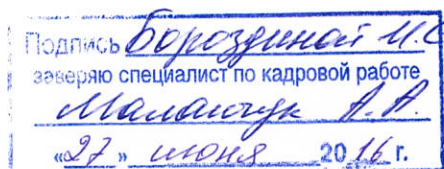 Подпись Бороздиной И.С
заверяю специалист по кадровой работе
Маланчук А.А.
«27» июня 2016 г.